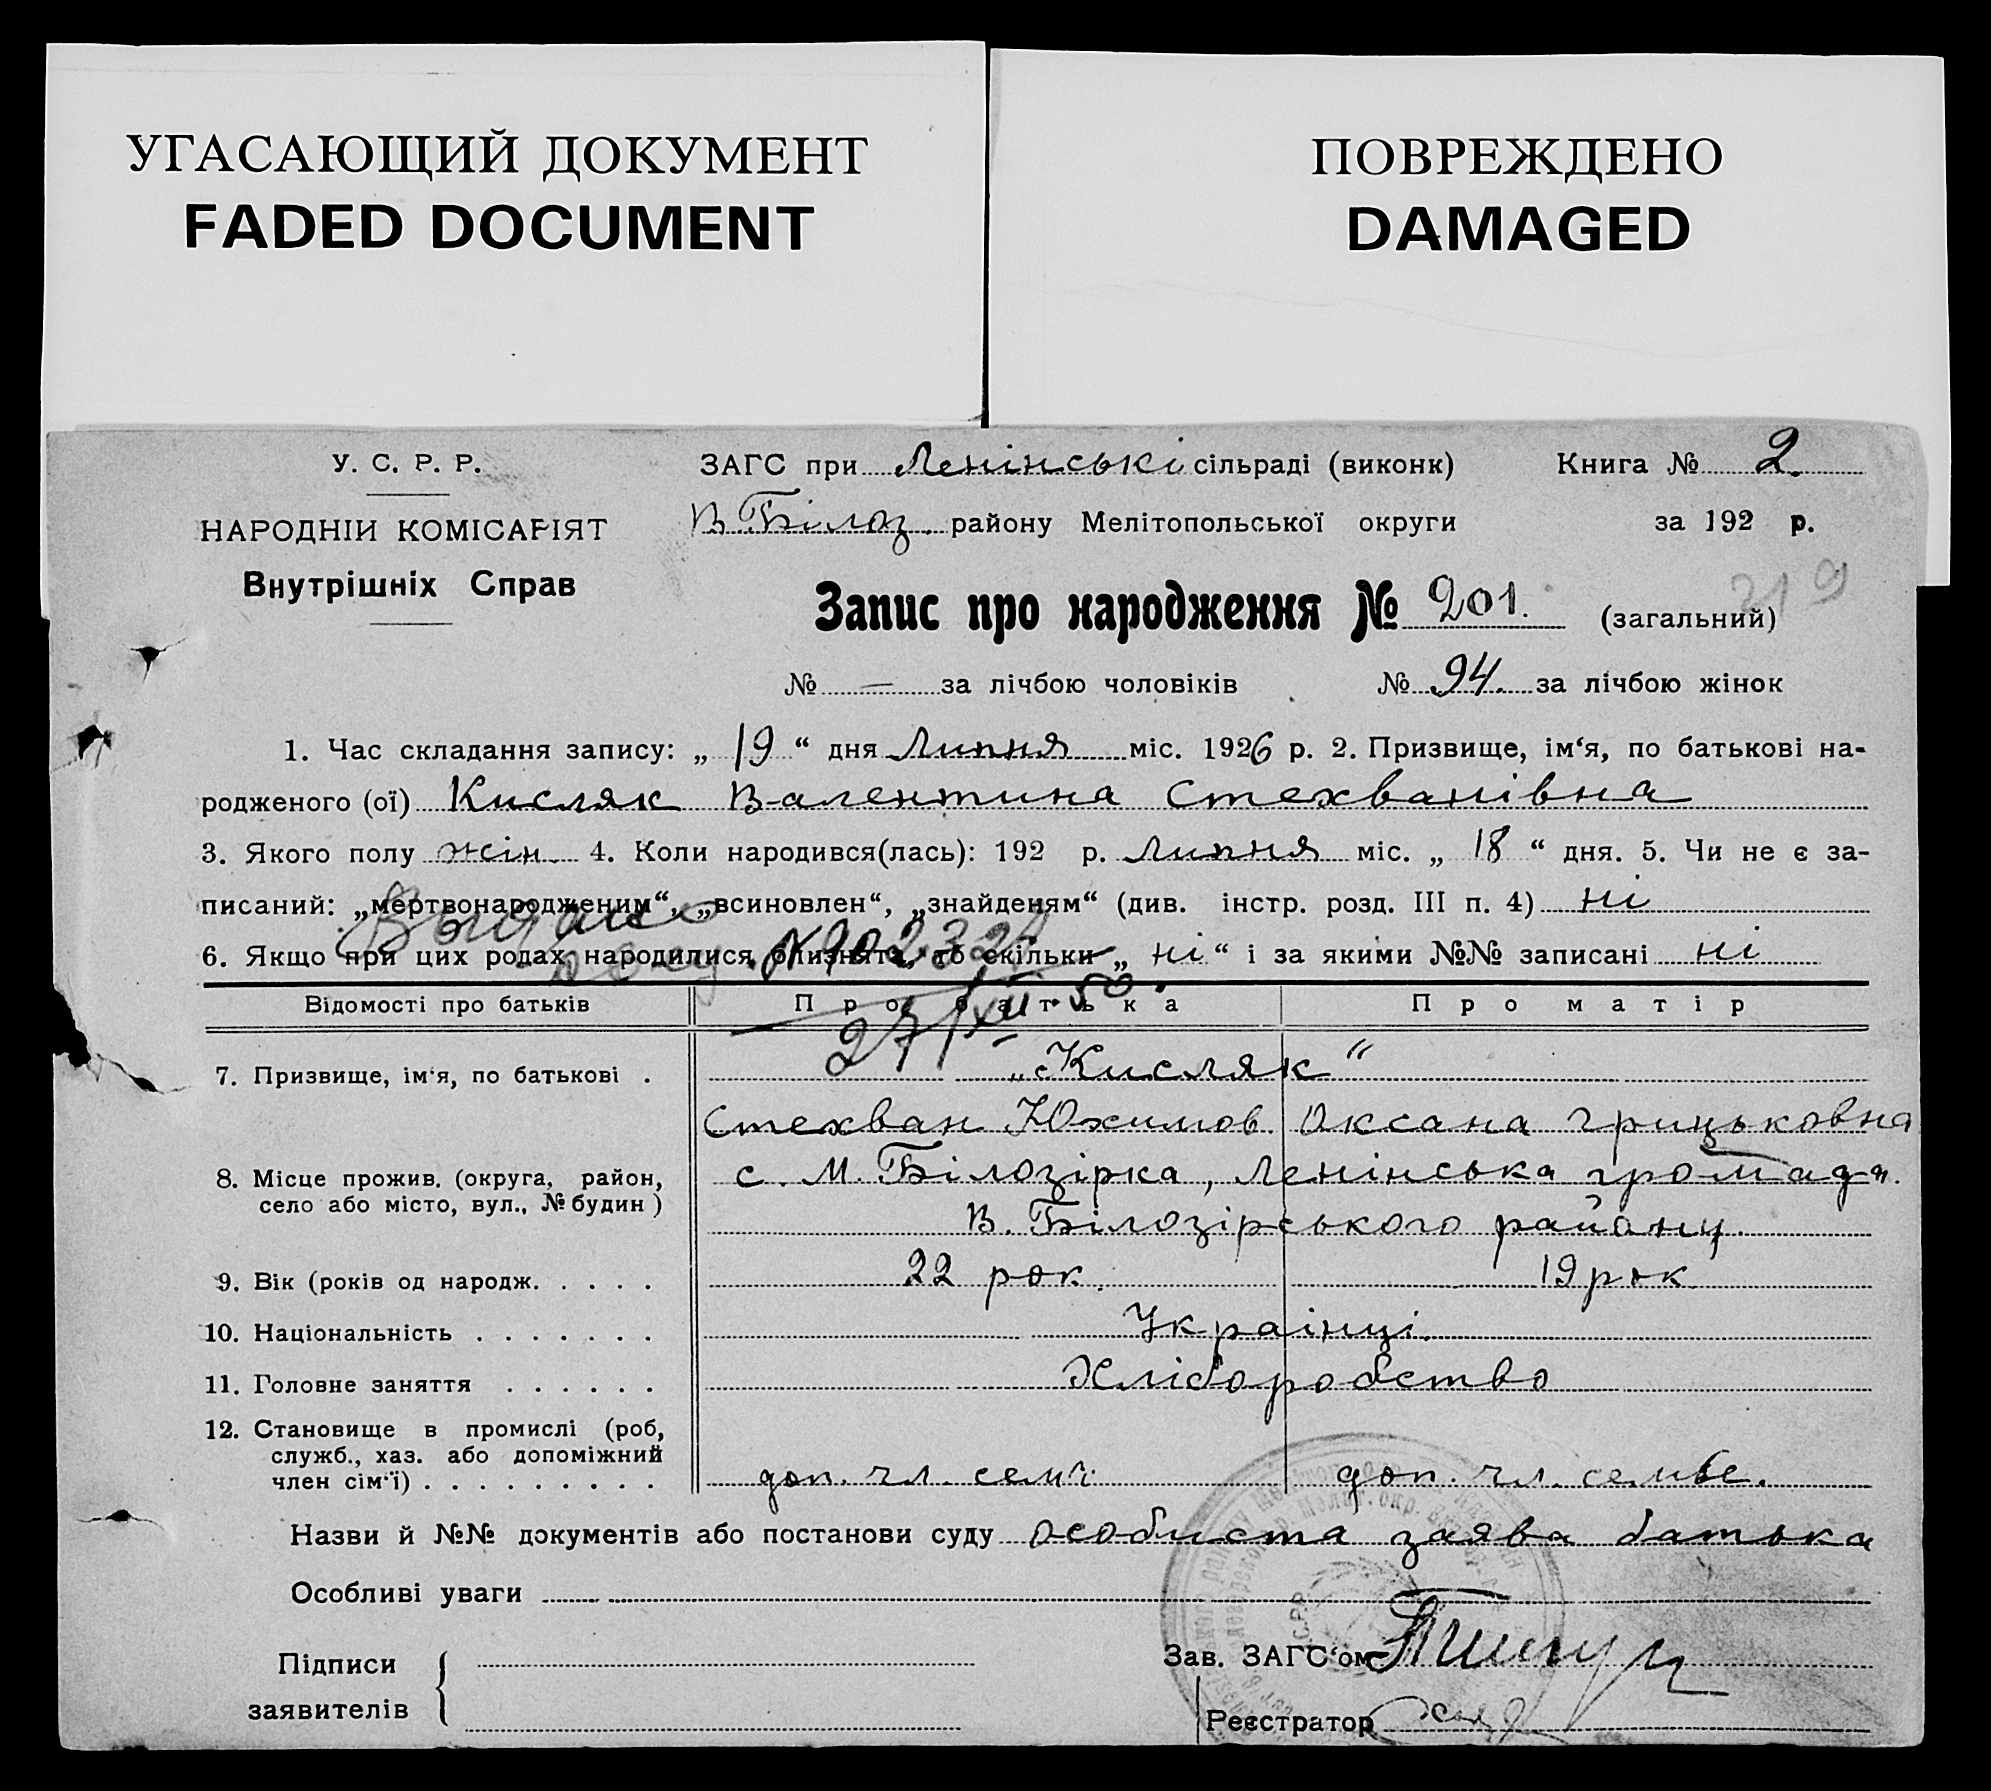 УГАСАЮЩИЙ ДОКУМЕНТ
FADED DOCUMENT
ПОВРЕЖДЕНО
DAMAGED
У. С. Р. Р.
НАРОДНІЙ КОМІСАРІЯТ
Внутрішніх Справ
ЗАГС при Ленінські сільраді (виконк) Книга № 2.
В Білоз. району Мелітопольської округи за 192 р.
219
Запис про народження № 201. (загальний)
№ — за лічбою чоловіків № 94. за лічбою жінок
1. Час складання запису: „ 19 “ дня Липня міс. 1926 р. 2. Призвище, ім‘я, по батькові на-
родженого (ої) Кисляк Валентина Стехванівна
3. Якого полу жін. 4. Коли народився(лась): 192 р. Липня міс. „ 18 “ дня. 5. Чи не є за-
писаний: „мертвонародженим“, „всиновлен“, „знайденям“ (див. інстр. розд. III п. 4) ні
6. Якщо при цих родах народилися близнята, то скільки „ ні “ і за якими №№ записані ні
27/XII 50
Відомості про батьків Про батька Про матір
7. Призвище, ім‘я, по батькові . „Кисляк“
Стехван Юхимов. Оксана Грицьковна
8. Місце прожив. (округа, район, село або місто, вул., № будин) с. М. Білозірка, Ленінська громада.
В. Білозірського району.
9. Вік (років од народж. . . . . 22 рок. 19 рок
10. Національність . . . . . . . Украінці.
11. Головне заняття . . . . . . Хліборобство
12. Становище в промислі (роб, служб., хаз. або допоміжний член сім‘ї) . . . . . . . . . доп. чл. семі доп. чл. семье.
Назви й №№ документів або постанови суду особиста заява батька
Особливі уваги
Підписи
заявителів
Зав. ЗАГС‘ом
Реєстратор